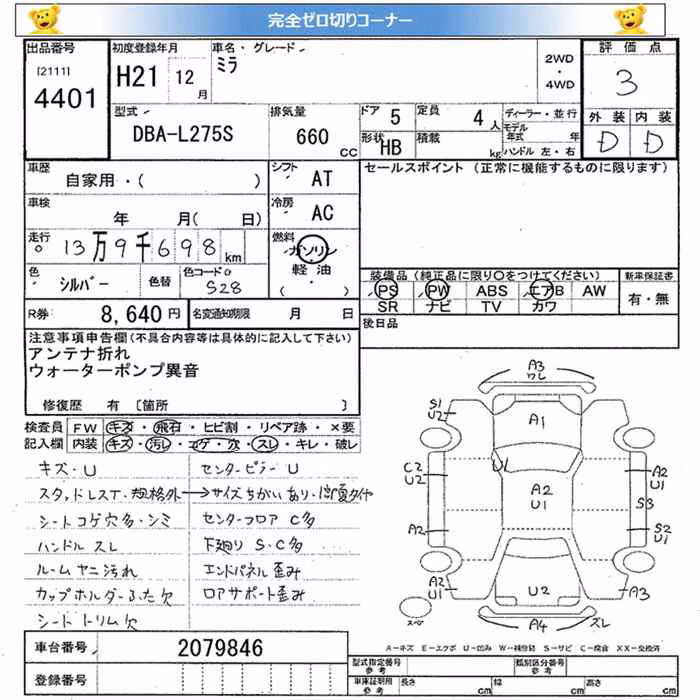 完全ゼロ切りコーナー
出品番号 [2111] 4401
初度登録年月 H21 12月
車名・グレード ミラ
2WD・4WD
評価点 3
型式 DBA-L275S
排気量 660 CC
ドア 5
形状 HB
定員 4人
積載 kg
ディーラー・並行
モデル年式 年
ハンドル 左・右
外装 D
内装 D
車歴 自家用・( )
シフト AT
セールスポイント (正常に機能するものに限ります)
車検 年 月( 日)
冷房 AC
走行 13万9千698km
燃料 ガソリン・軽油・( )
色 シルバー 色替
色コードO S28
装備品(純正品に限り○をつけてください)
PS PW ABS エアB AW
SR ナビ TV カワ
新車保証書 有・無
R券 8,640円
名変通知期限 月 日
後日品
注意事項申告欄(不具合内容等は具体的に記入して下さい)
アンテナ折れ
ウォーターポンプ異音
修復歴 有 [箇所 ]
検査員 FW キズ・飛石・ヒビ割・リペア跡・×要
記入欄 内装 キズ・汚レ・コゲ・穴・スレ・キレ・破レ
キズ・U センターピラー U
スタッドレスT・規格外→サイズちがいあり・
シートコゲ穴多・シミ センターフロア C多
ハンドルスレ 下廻り S・C多
ルームヤニ汚れ エンドパネル歪み
カップホルダーふた欠 ロアサポート歪み
シートトリム欠
A3 ワレ
S1 U2
A1
U1
C2 U2
A2 U1
A2 U1
S3
A2
S2 U1
A2 U1
U2
A3
A4 スレ
スペ
A-キズ E-エクボ U-凹み W-補修跡 S-サビ C-腐食 XX-交換済
車台番号 2079846
登録番号
型式指定番号 参考
類別区分番号 参考
車庫証明用 参考 長さ cm 幅 cm 高さ cm